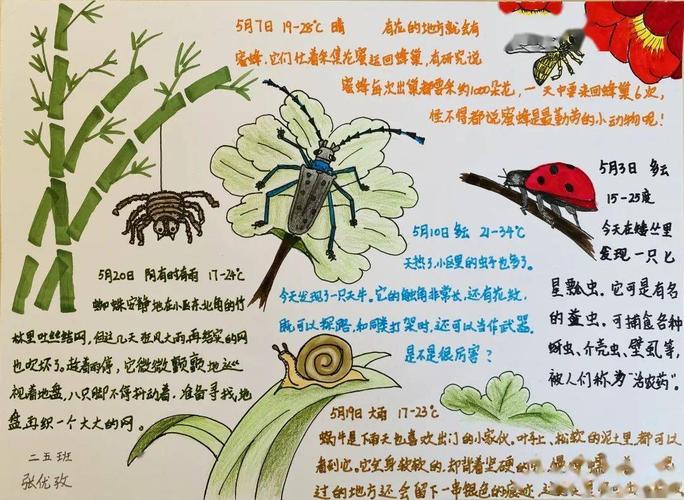 5月7日 19-28℃ 晴 有花的地方就会有
蜜蜂,它们忙着采集花蜜运回蜂巢,有研究说
蜜蜂每次出巢都要采约1000朵花,一天中要来回蜂巢6次,
怪不得都说蜜蜂是最勤劳的小动物呢!
5月3日 多云
15-25度
今天在矮丛里
发现一只七
星瓢虫。它可是有名
的益虫。可捕食各种
蚜虫、介壳虫、壁虱等,
被人们称为“活农药”。
5月10日 多云 21-34℃
天热了小区里的虫子也多了。
今天发现了一只天牛。它的触角非常长,还有花纹,
既可以探路,和同类打架时,还可以当作武器,
是不是很厉害?
5月20日 阴有时有雨 17-24℃
蜘蛛安静地在小区东北角的竹
林里吐丝结网,但这几天狂风大雨,再结实的网
也吹坏了。趁着雨停,它微微颤颤地巡
视着地盘,八只脚不停抖动着,准备寻找地
盘再织一个大大的网。
二五班
张优孜
5月19日 大雨 17-23℃
蜗牛是下雨天也喜欢出门的小家伙。叶子上,松软的泥土里都可以
看到它。它全身软软的,却背着坚硬的
过的地方还会留下一串银色的